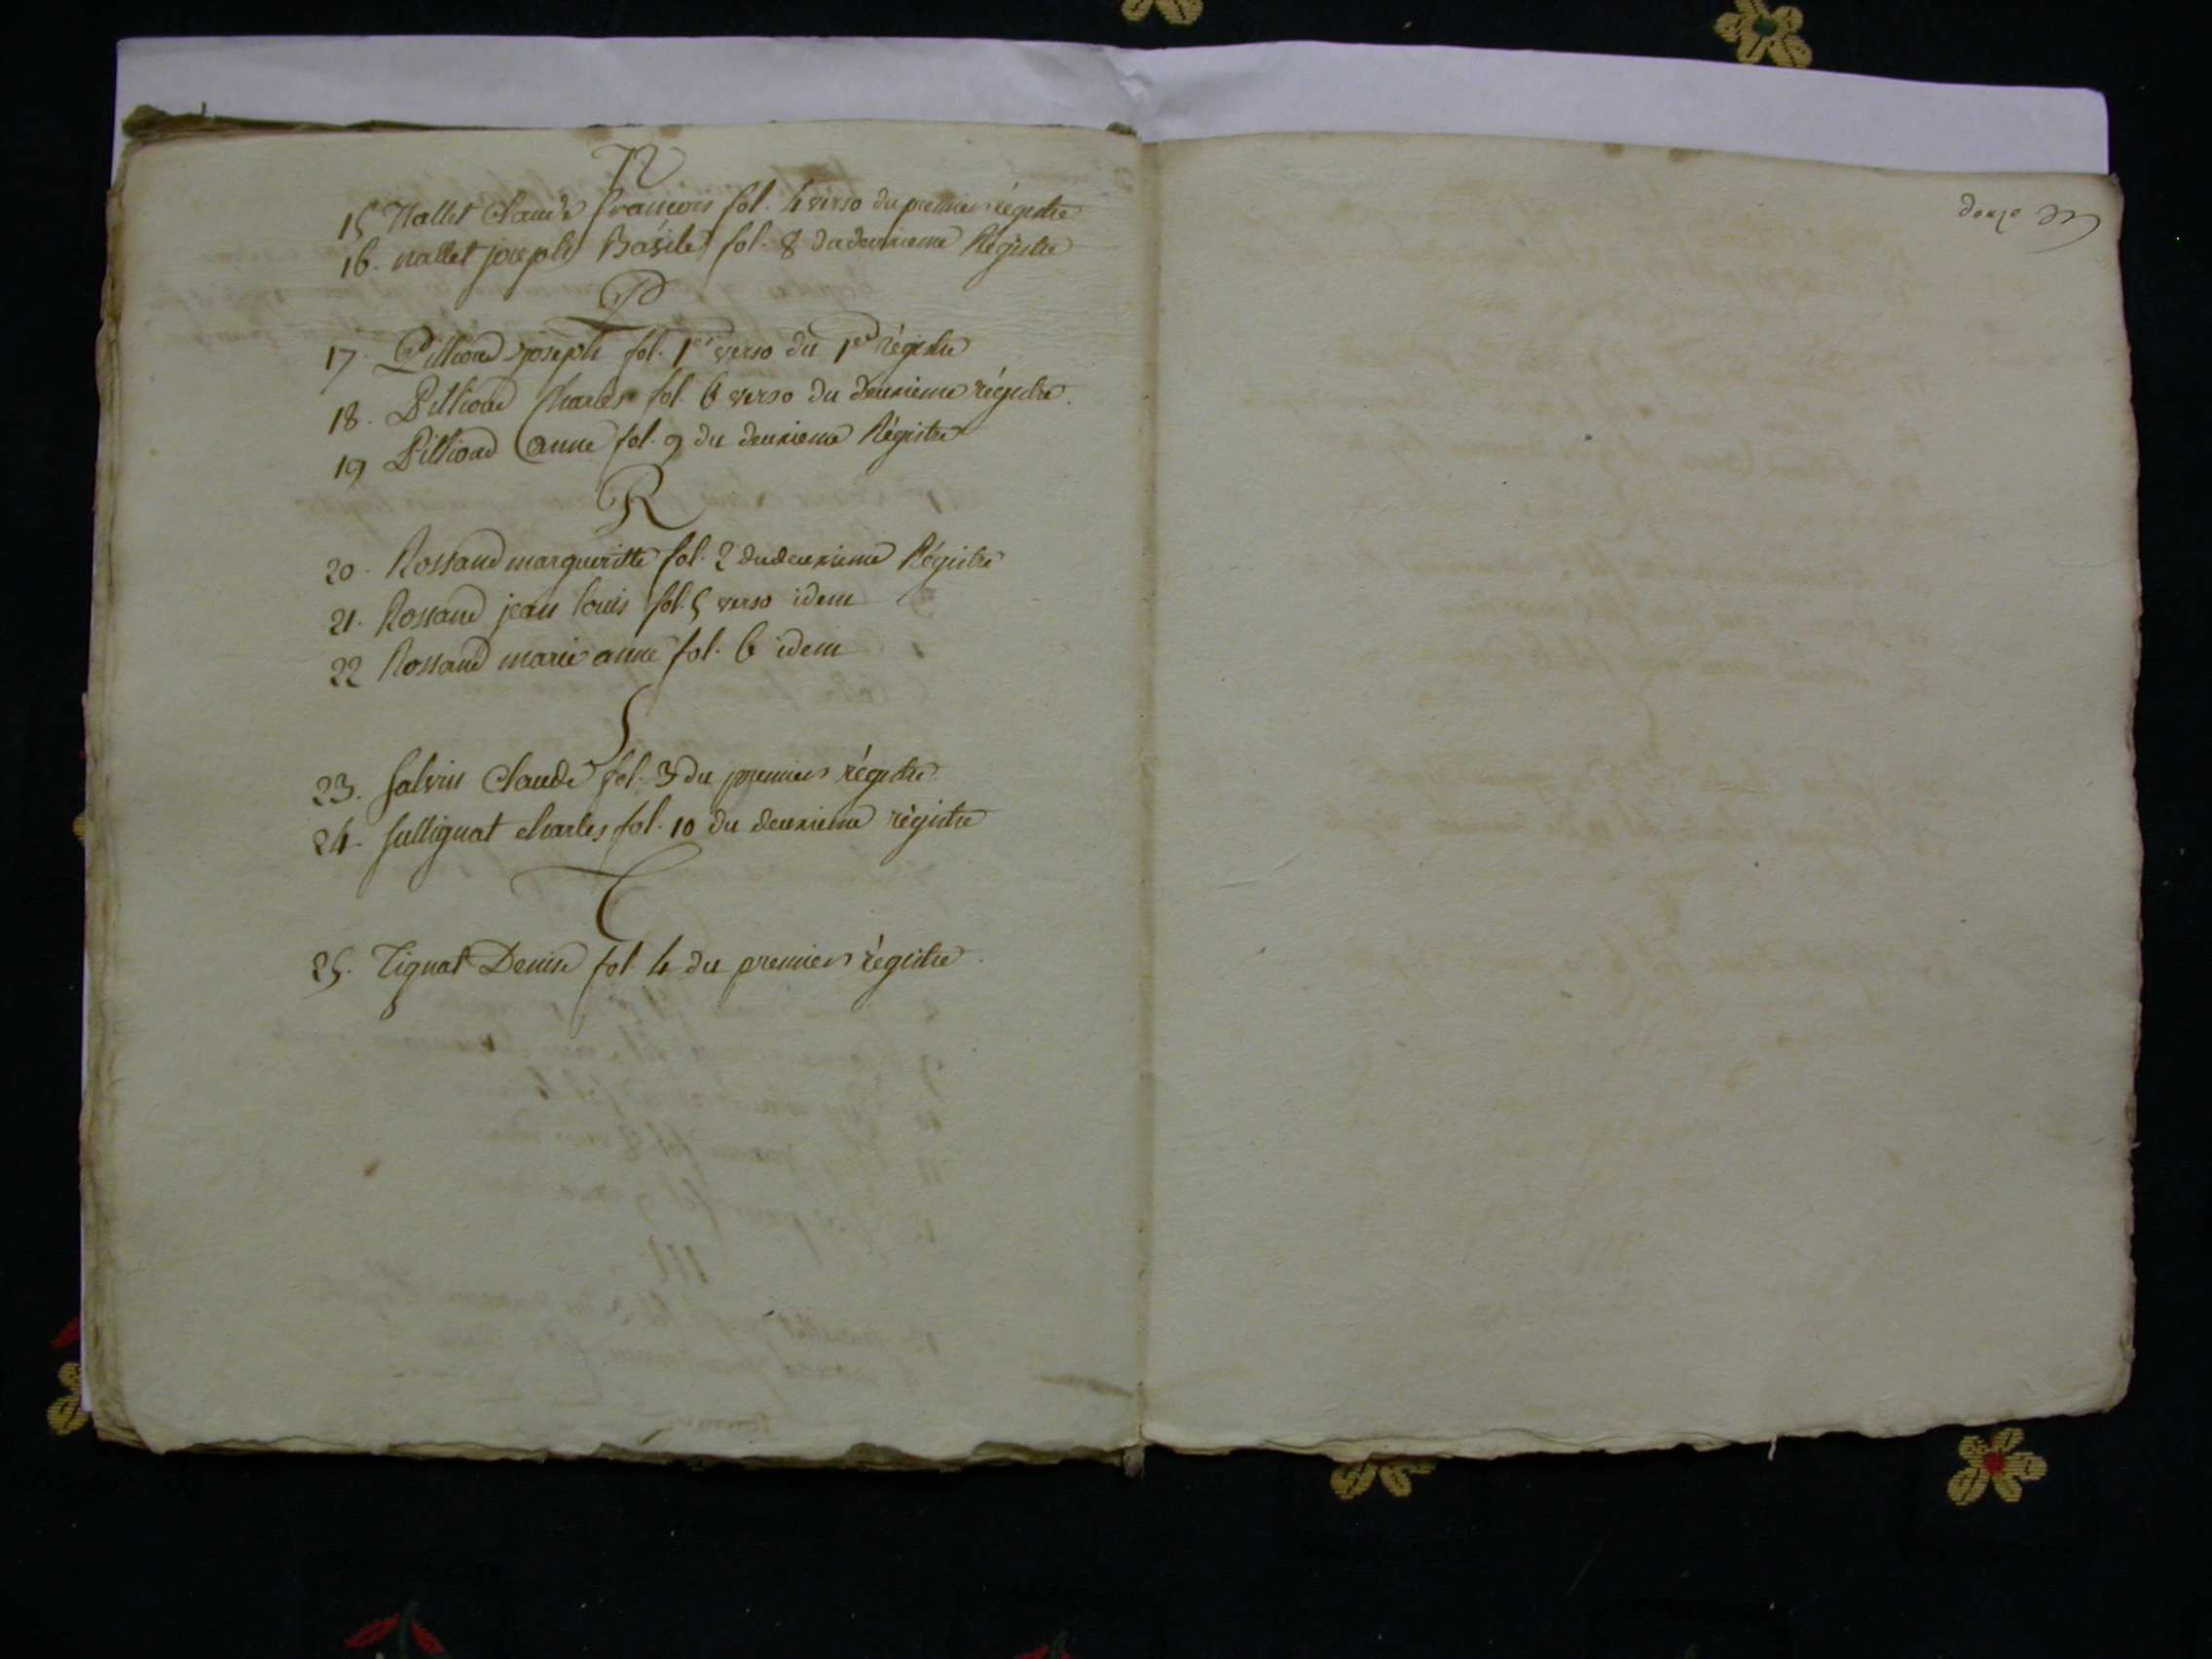 N
15 Nallet Claude francois fol. 4 verso du premier régistre
16. nallet joseph Basile fol. 8 du deuxieme Régistre
P
17. Pilliond joseph fol. 1er verso du 1er régistre
18. Pilliond Charles fol. 6 verso du deuxieme régistre.
19 Pilliond anne fol. 9 du deuxieme Régistre
R
20. Rossand margueritte fol. 2 du deuxieme Régistre
21. Rossand jean louis fol. 5 verso idem
22 Rossand marie anne fol. 6 idem
S
23. Salvin Claude fol. 3 du premier régistre
24. Sullignat charles fol. 10 du deuxieme régistre
T
25. Tignat Denise fol. 4 du premier régistre.
douze